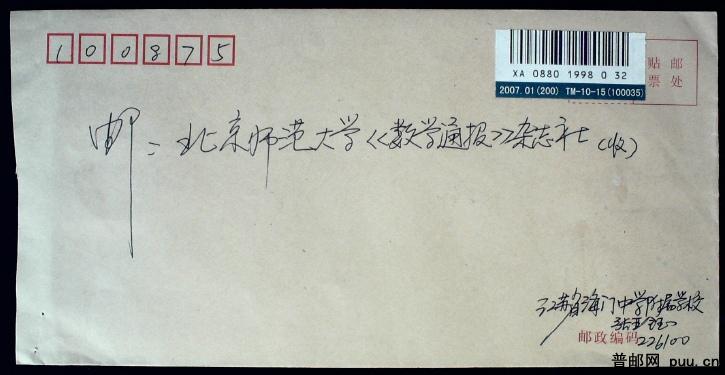 100875
XA 0880 1998 0 32
2007.01(200) TM-10-15(100035)
贴邮
票处
邮：北京师范大学《数学通报》杂志社(收)
江苏省海门中学附属学校
邮政编码 226100
普邮网 puu.cn